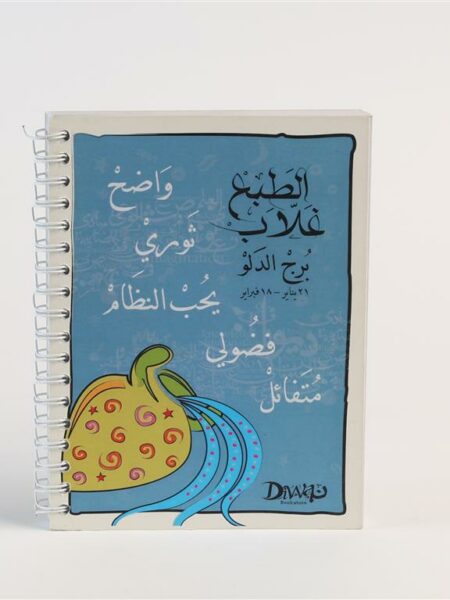 الطَبع
غَلّاب
بُرج الدلو
٢١ يناير - ١٨ فبراير
وَاضحْ
ثَوريْ
يحُبْ النظَام
فضُولي
مُتَفائلْ
Diwan ديوان
Bookstore